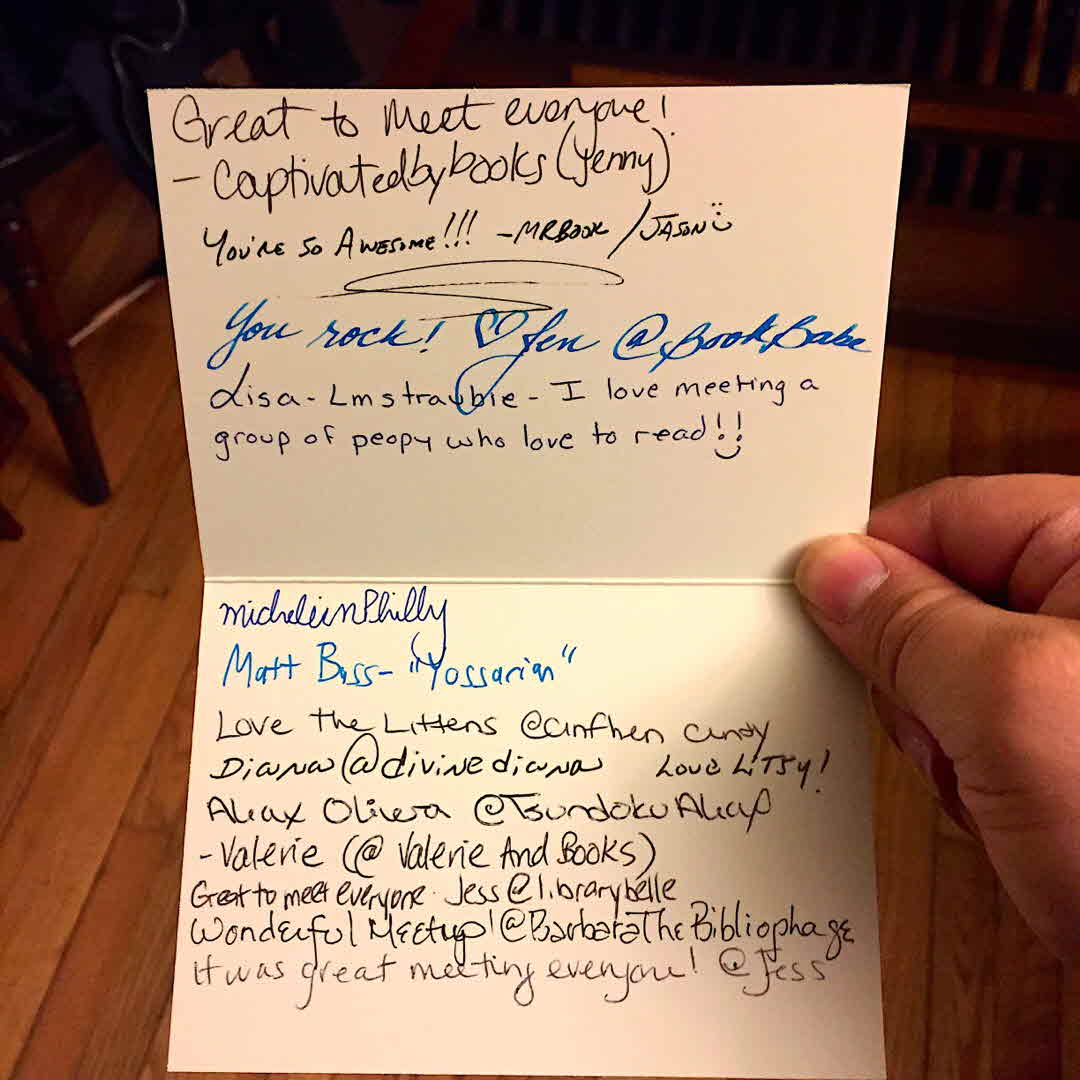 Great to meet everyone!
- Captivatedbybooks (Jenny)
You're so Awesome!!! - MRBOOK / JASON
You rock! ♡ Jen @BookBabe
Lisa - Lmstraubie - I love meeting a
group of peopy who love to read!!
micheleinPhilly
Matt Bass- "Yossarian"
Love the Littens @Cinfhen Cindy
Diana @divinediana Love LiTSy!
Aliax Olivera @Tsundoku
- Valerie (@ Valerie And Books)
Great to meet everyone. Jess @librarybelle
Wonderful Meetup! @BarbaraTheBibliophage
it was great meeting everyone! @Jess